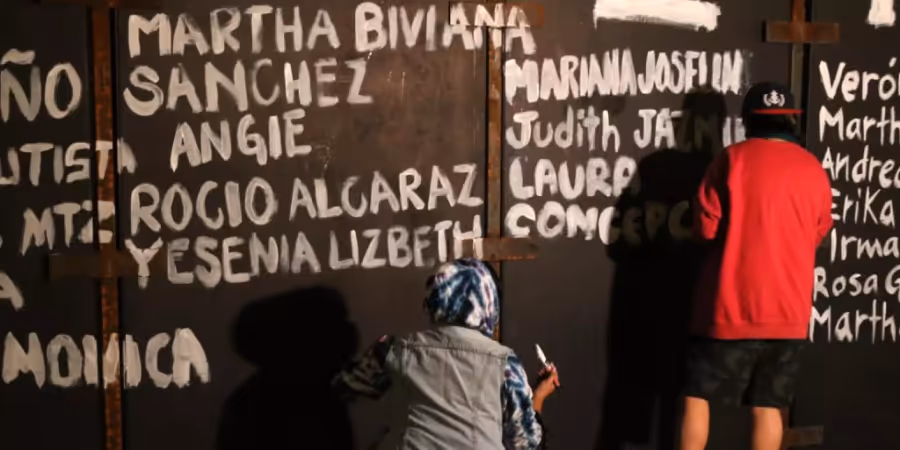 ÑO
MTZ
A
MONICA
MARTHA BIVIANA
SANCHEZ
ANGIE
ROCIO ALCARAZ
YESENIA LIZBETH
MARIANA JOSELIN
Judith
LAURA
Verón
Marth
Andrea
Erika
Irma
Rosa G
Martha